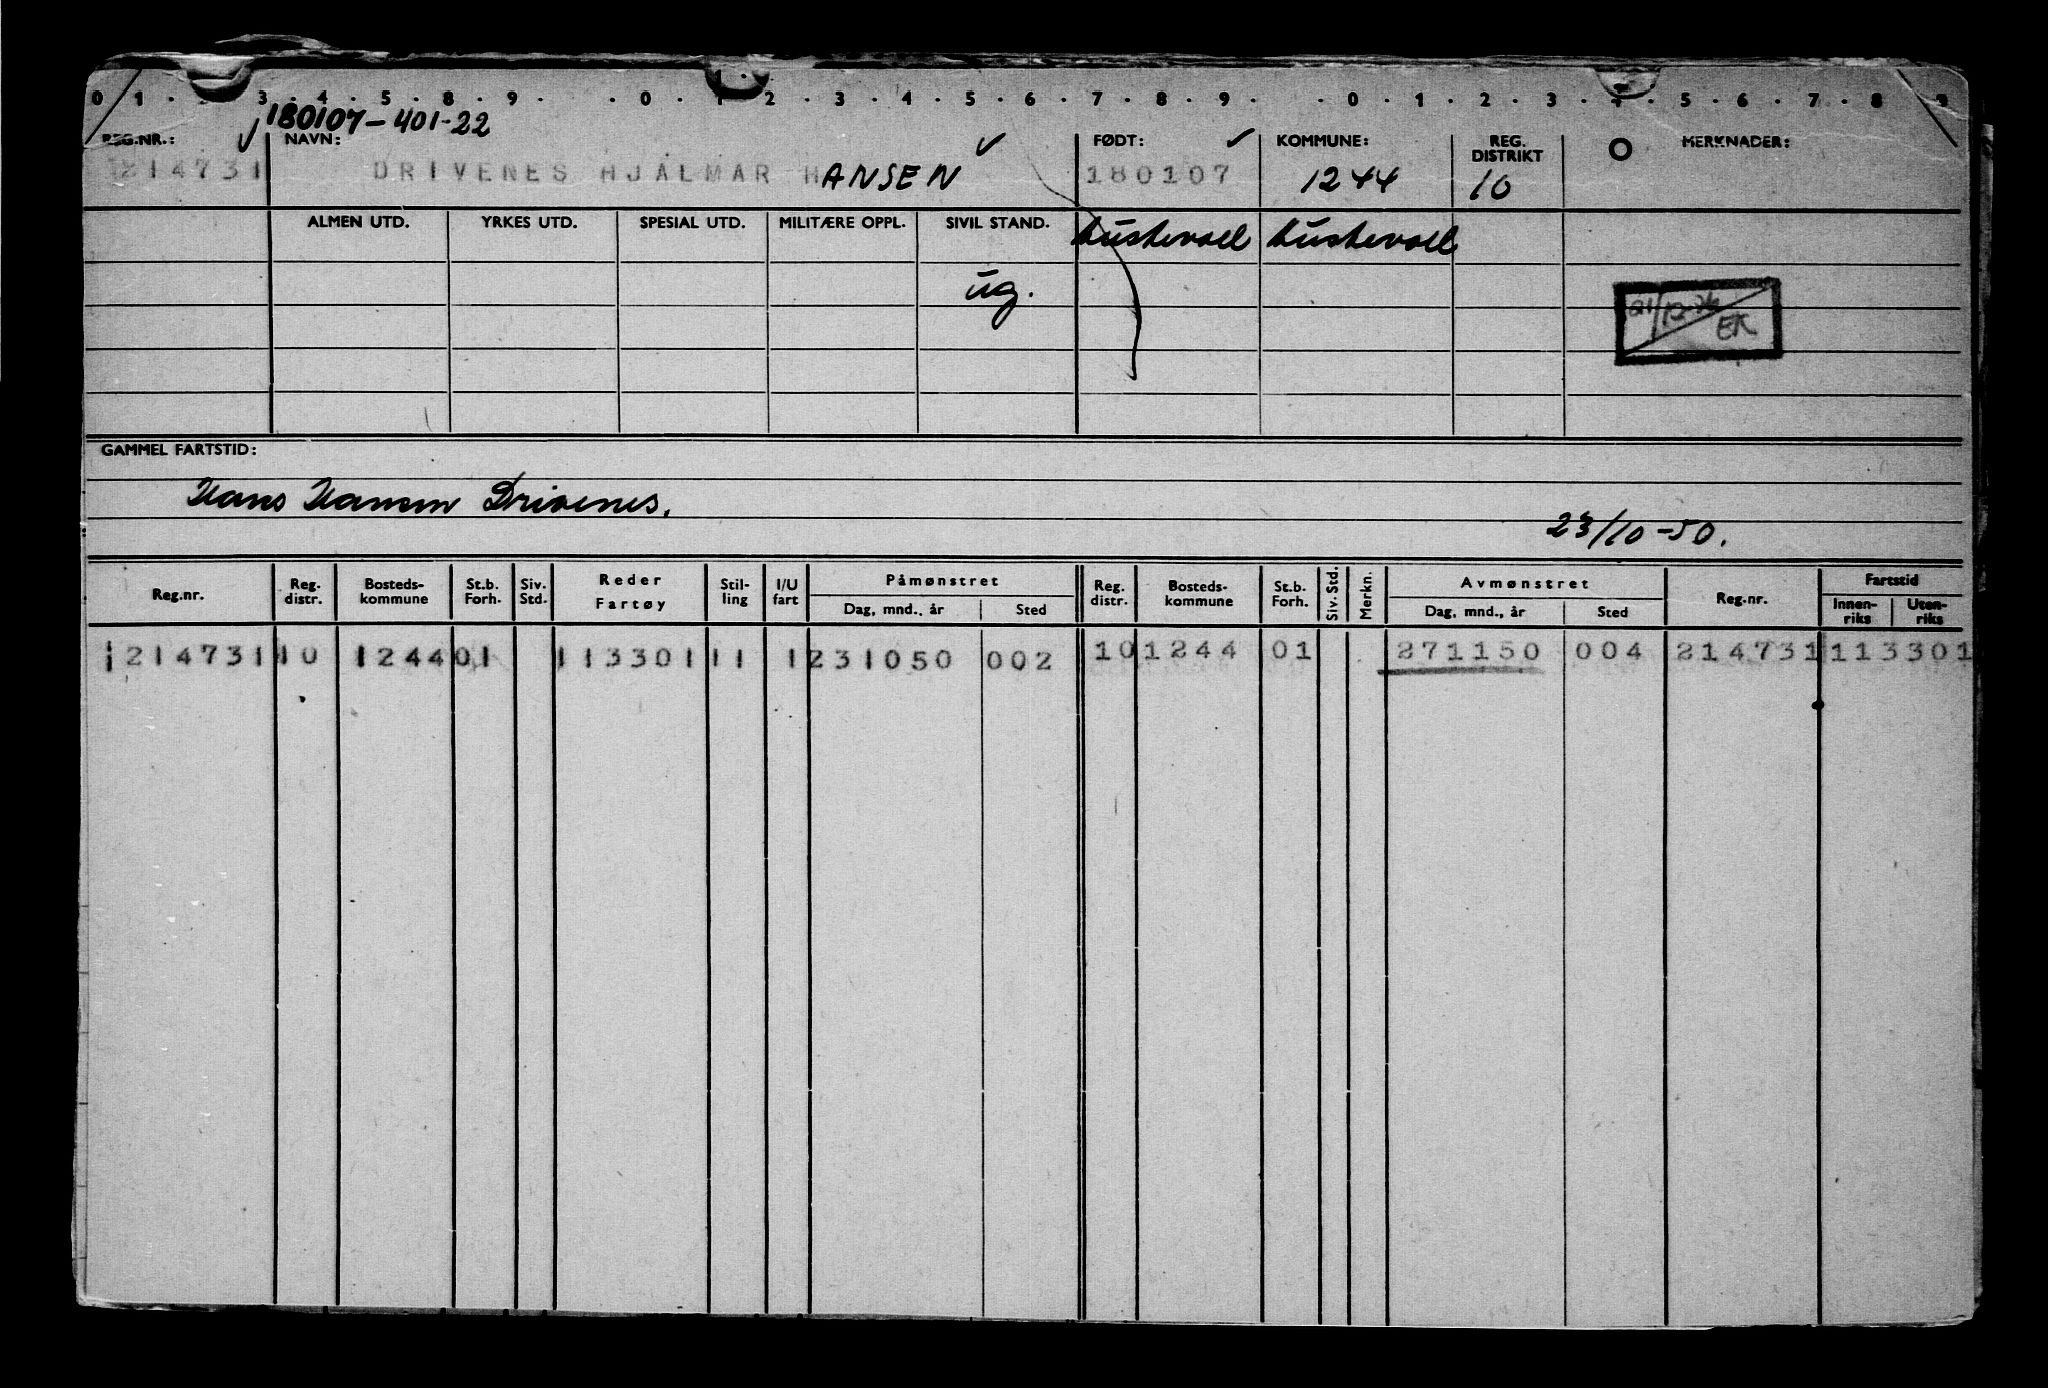 0 1 . 2 . 3 . 4 . 5 . 8 . 9 . . 0 . 1 . 2 . 3 . 4 . 5 . 6 . 7 . 8 . 9 . . 0 . 1 . 2 . 3 . 4 . 5 . 6 . 7 . 8 . 9
180107-401-22
REG.NR.: NAVN: FØDT: KOMMUNE: REG. DISTRIKT MERKNADER:
214731 DRIVENES HJALMAR HANSEN 180107 1244 10
ALMEN UTD. YRKES UTD. SPESIAL UTD. MILITÆRE OPPL. SIVIL STAND. Austevoll Austevoll
ug.
EK
GAMMEL FARTSTID:
Hans Hansen Drivenes.
23/10-50.
Reg.nr. Reg. distr. Bosteds-kommune St.b. Forh. Siv. Std. Reder Fartøy Stil-ling I/U fart Påmønstret Dag, mnd., år Sted Reg. distr. Bosteds-kommune St.b. Forh. Siv. Std. Merkn. Avmønstret Dag, mnd., år Sted Reg.nr. Fartstid Innen-riks Uten-riks
214731 10 1244 01 113301 11 1 231050 002 10 1244 01 271150 004 214731 113301